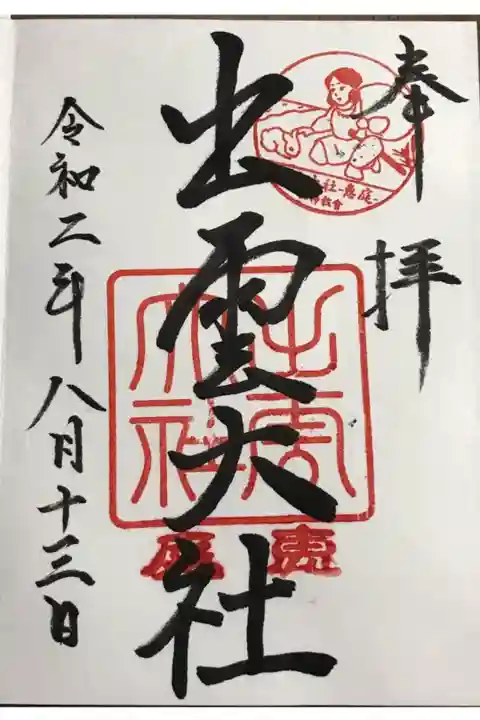 奉拝
出雲大社
令和二年八月十三日
社-恵庭-
教會
出雲
大社
恵庭